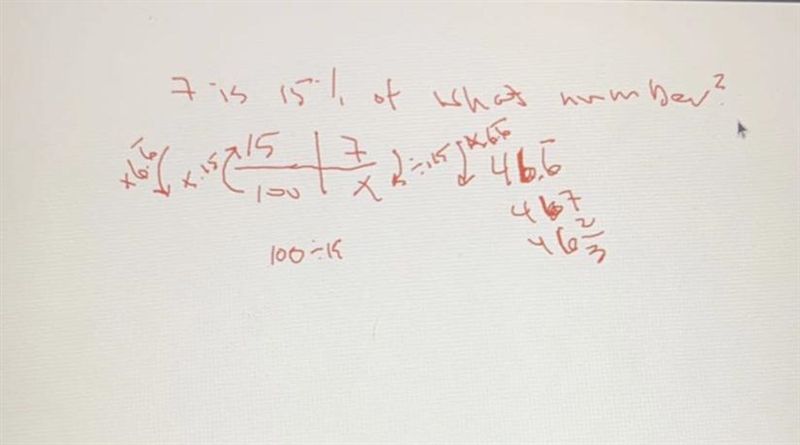 7 is 15% of what number?
×6.6̅ ×.15 15 | 7 ÷.15 ×6.6̅ 46.6̅
100 | x
467
46 2/3
100÷15